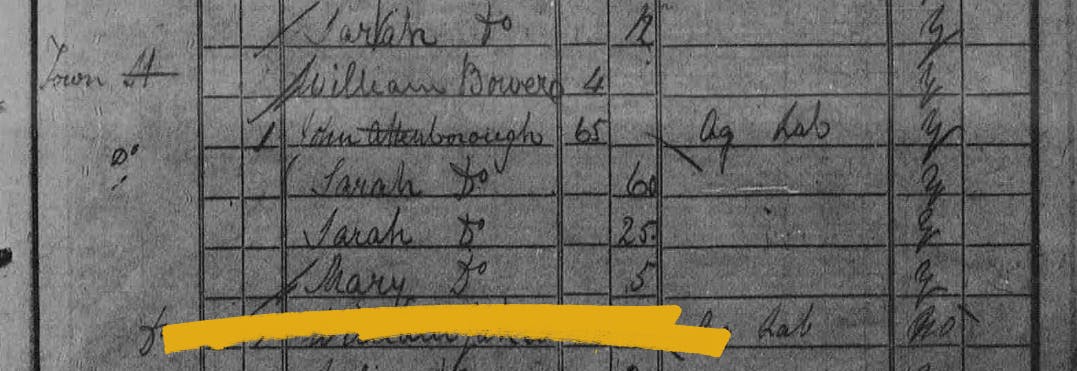 Sarah Do 2 y
Town St William Bowers 4 y
Do 1 John Attenborough 65 Ag Lab y
Sarah Do 60 y
Sarah Do 25 y
Mary Do 5 y
Do Ag Lab no